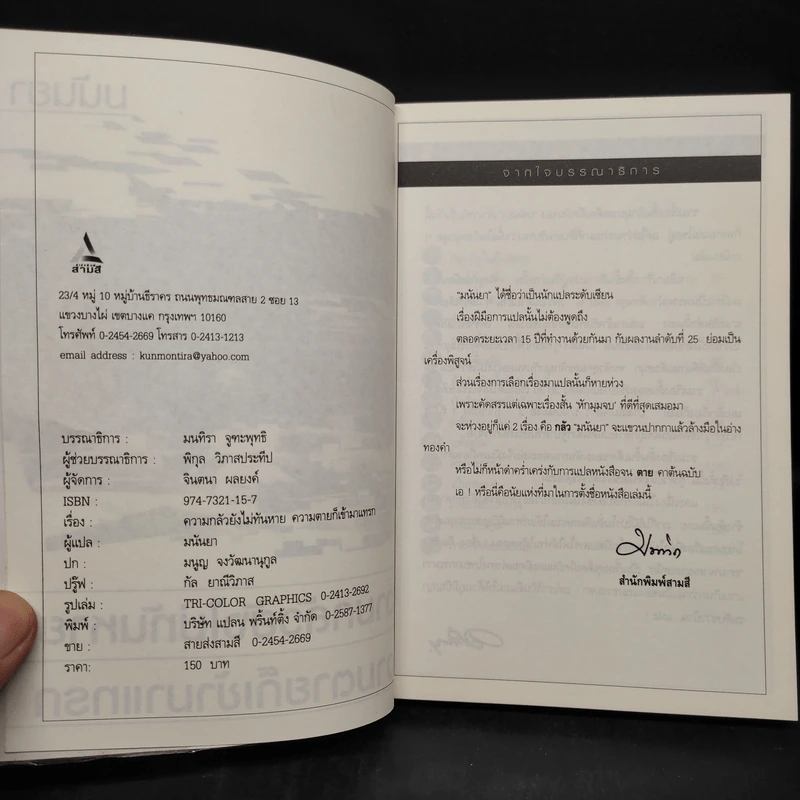 สามสี
23/4 หมู่ 10 หมู่บ้านธีราคร ถนนพุทธมณฑลสาย 2 ซอย 13
แขวงบางไผ่ เขตบางแค กรุงเทพฯ 10160
โทรศัพท์ 0-2454-2669 โทรสาร 0-2413-1213
email address : kunmontira@yahoo.com
บรรณาธิการ : มนทิรา จูฑะพุทธิ
ผู้ช่วยบรรณาธิการ : พิกุล วิภาสประทีป
ผู้จัดการ : จินตนา ผลยงค์
ISBN : 974-7321-15-7
เรื่อง : ความกลัวยังไม่ทันหาย ความตายก็เข้ามาแทรก
ผู้แปล : มนันยา
ปก : มนูญ จงวัฒนานุกูล
ปรู๊ฟ : กัล ยาณีวิภาส
รูปเล่ม : TRI-COLOR GRAPHICS 0-2413-2692
พิมพ์ : บริษัท แปลน พริ้นท์ติ้ง จำกัด 0-2587-1377
ขาย : สายส่งสามสี 0-2454-2669
ราคา: 150 บาท
จากใจบรรณาธิการ
"มนันยา" ได้ชื่อว่าเป็นนักแปลระดับเซียน
เรื่องฝีมือการแปลนั้นไม่ต้องพูดถึง
ตลอดระยะเวลา 15 ปีที่ทำงานด้วยกันมา กับผลงานลำดับที่ 25 ย่อมเป็น
เครื่องพิสูจน์
ส่วนเรื่องการเลือกเรื่องมาแปลนั้นก็หายห่วง
เพราะคัดสรรแต่เฉพาะเรื่องสั้น 'หักมุมจบ' ที่ดีที่สุดเสมอมา
จะห่วงอยู่ก็แค่ 2 เรื่อง คือ กลัว "มนันยา" จะแขวนปากกาแล้วล้างมือในอ่าง
ทองคำ
หรือไม่ก็หน้าดำคร่ำเคร่งกับการแปลหนังสือจน ตาย คาต้นฉบับ
เอ ! หรือนี่คือนัยแห่งที่มาในการตั้งชื่อหนังสือเล่มนี้
สำนักพิมพ์สามสี